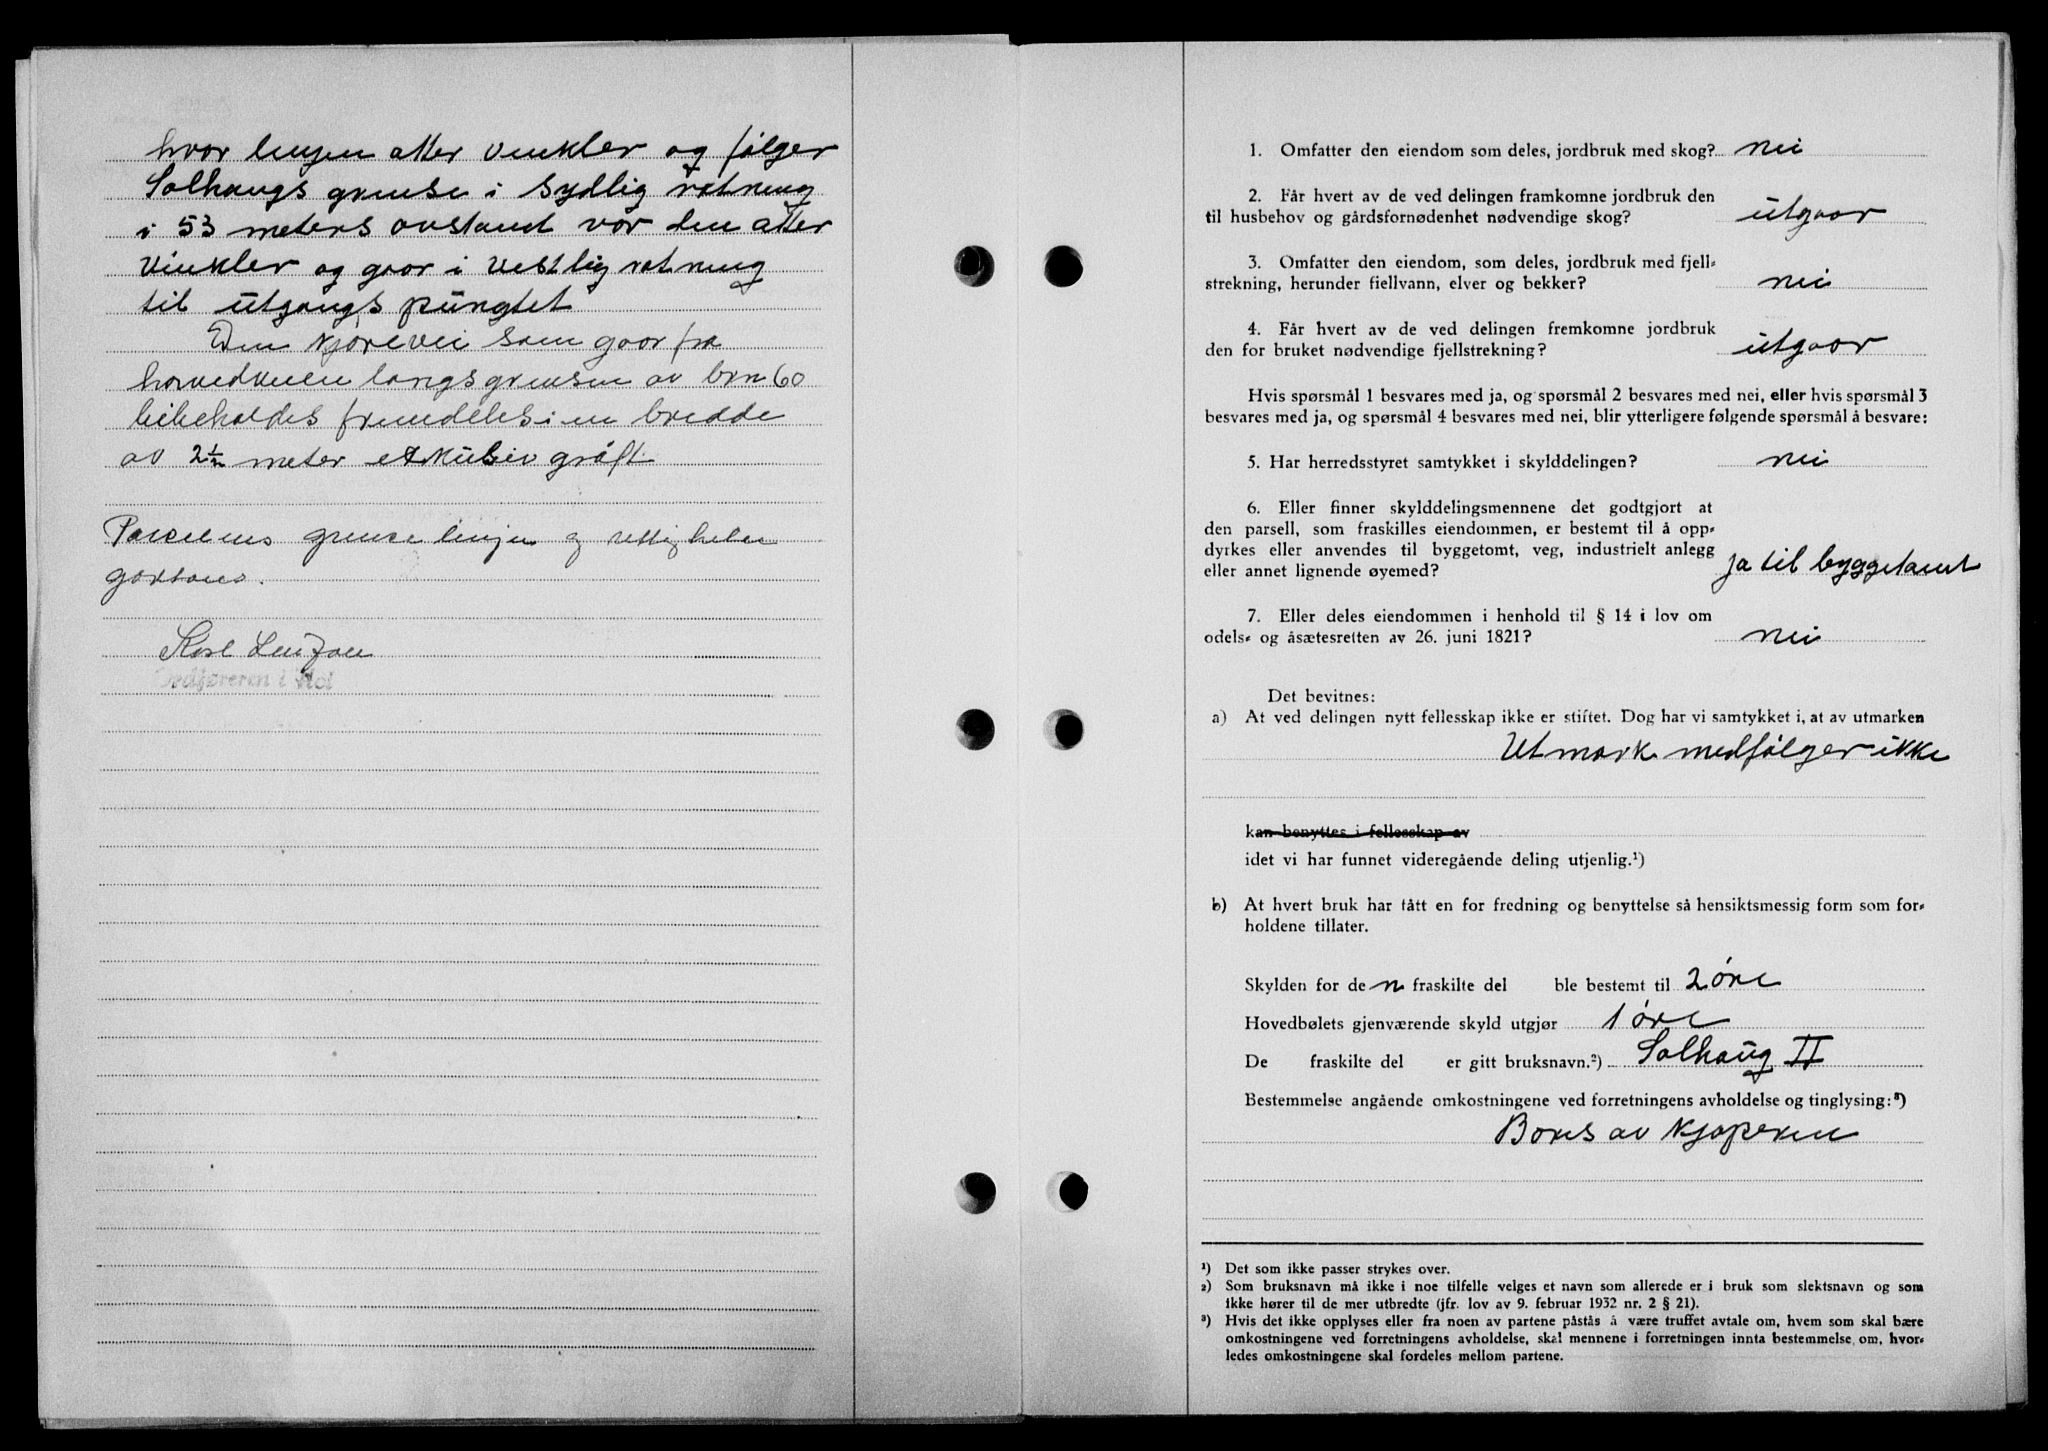 hvor linjen atter vinkler og følger
Solhaugs grense i sydlig retning
i 53 meters avstand vor den atter
vinkler og gaar i vestlig retning
til utgangs pungtet
Den kjørevei som gaar fra
hovedveien langs grensen av brn 60
bibeholdes fremdeles i en bredde
av 2½ meter exkulsiv grøft
Parcelens grense linjer og rettigheter
godtaes.
Karl Leirfall
Ordføreren i Hol
1. Omfatter den eiendom som deles, jordbruk med skog? nei
2. Får hvert av de ved delingen framkomne jordbruk den
til husbehov og gårdsfornødenhet nødvendige skog? utgaar
3. Omfatter den eiendom, som deles, jordbruk med fjell-
strekning, herunder fiellvann, elver og bekker? nei
4. Får hvert av de ved delingen fremkomne jordbruk
den for bruket nødvendige fjellstrekning? utgaar
Hvis spørsmål 1 besvares med ja, og spørsmål 2 besvares med nei, eller hvis spørsmål 3
besvares med ja, og spørsmål 4 besvares med nei, blir ytterligere følgende spørsmål å besvare:
5. Har herredsstyret samtykket i skylddelingen? nei
6. Eller finner skylddelingsmennene det godtgjort at
den parsell, som fraskilles eiendommen, er bestemt til å opp-
dyrkes eller anvendes til byggetomt, veg, industrielt anlegg
eller annet lignende øyemed? ja til byggetomt
7. Eller deles eiendommen i henhold til § 14 i lov om
odels- og åsætesretten av 26. juni 1821? nei
Det bevitnes:
a) At ved delingen nytt fellesskap ikke er stiftet. Dog har vi samtykket i, at av utmarken
Utmark medfølger ikke
kan benyttes i fellesskap av
idet vi har funnet videregående deling utjenlig.¹)
b) At hvert bruk har fått en for fredning og benyttelse så hensiktsmessig form som for-
holdene tillater.
Skylden for de n fraskilte del ble bestemt til 2 øre
Hovedbølets gjenværende skyld utgjør 1 øre
De fraskilte del er gitt bruksnavn.²) Solhaug II
Bestemmelse angående omkostningene ved forretningens avholdelse og tinglysing:³)
Bæres av kjøperen
¹) Det som ikke passer strykes over.
²) Som bruksnavn må ikke i noe tilfelle velges et navn som allerede er i bruk som slektsnavn og som
ikke hører til de mer utbredte (jfr. lov av 9. februar 1932 nr. 2 § 21).
³) Hvis det ikke opplyses eller fra noen av partene påstås å være truffet avtale om, hvem som skal bære
omkostningene ved forretningens avholdelse, skal mennene i forretningen innta bestemmelse om, hvor-
ledes omkostningene skal fordeles mellom partene.